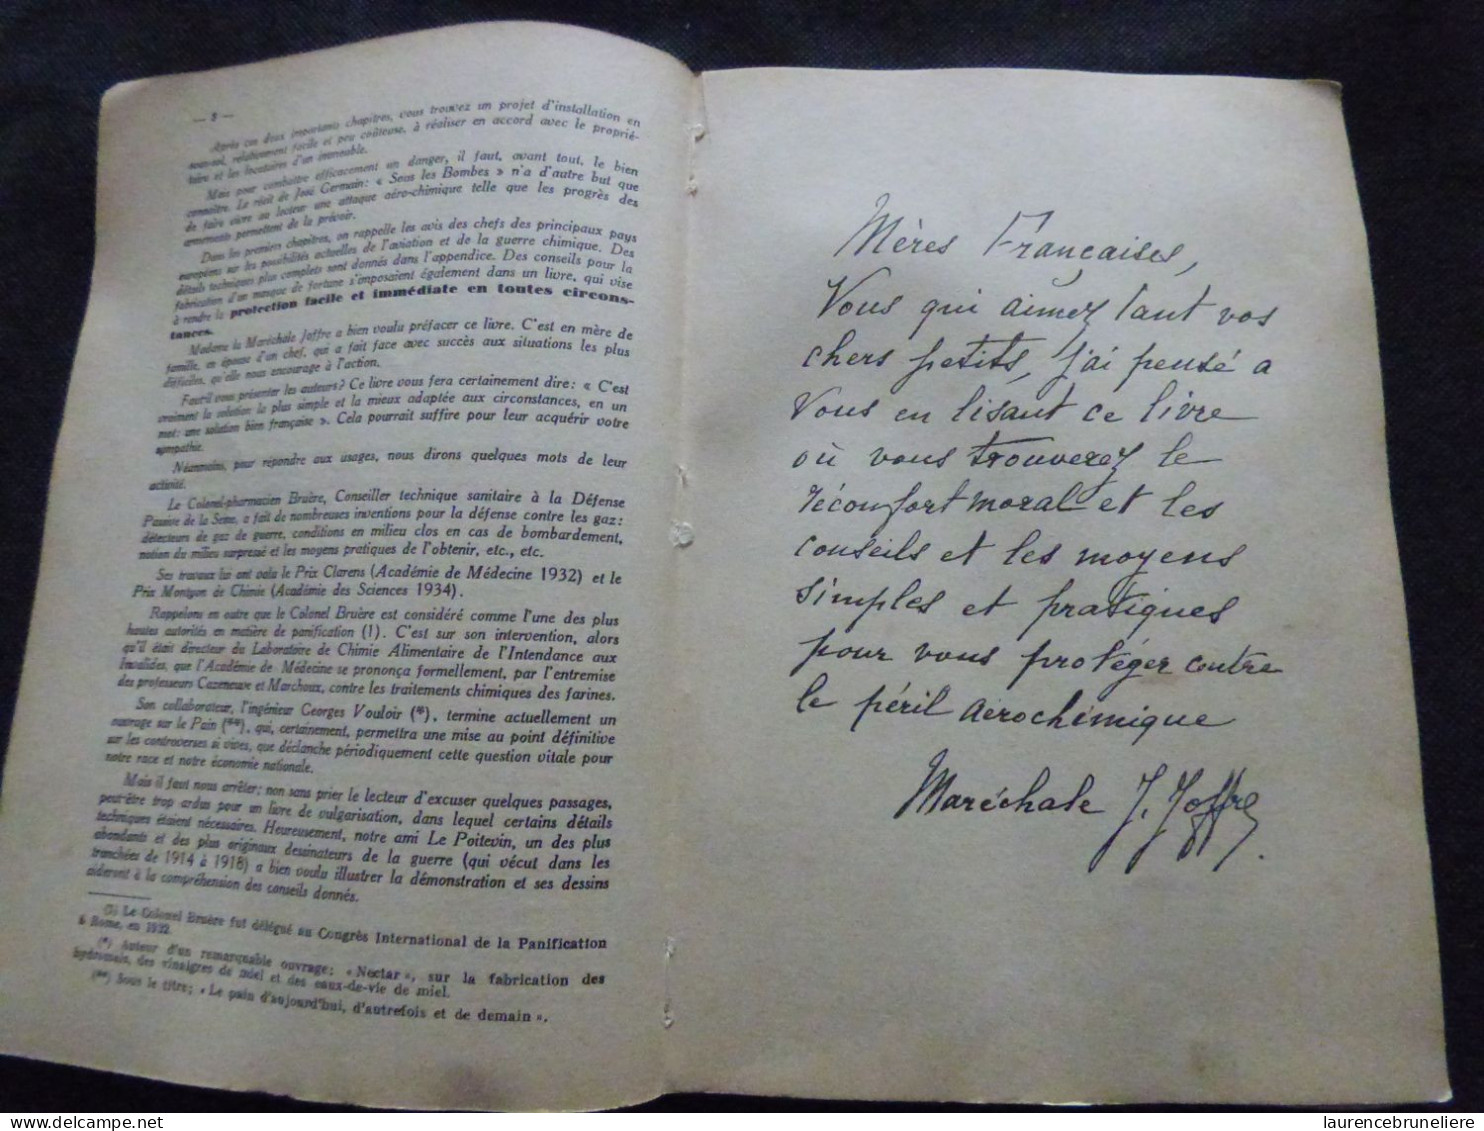 — 8 —
Après ces deux importants chapitres, vous trouvez un projet d'installation en
sous-sol, relativement facile et peu coûteuse, à réaliser en accord avec le proprié-
taire et les locataires d'un immeuble.
Mais pour combattre efficacement un danger, il faut, avant tout, le bien
connaître. Le récit de José Germain: « Sous les Bombes » n'a d'autre but que
de faire vivre au lecteur une attaque aéro-chimique telle que les progrès des
armements permettent de la prévoir.
Dans les premiers chapitres, on rappelle les avis des chefs des principaux pays
européens sur les possibilités actuelles de l'aviation et de la guerre chimique. Des
détails techniques plus complets sont donnés dans l'appendice. Des conseils pour la
fabrication d'un masque de fortune s'imposaient également dans un livre, qui vise
à rendre la protection facile et immédiate en toutes circons-
tances.
Madame la Maréchale Joffre a bien voulu préfacer ce livre. C'est en mère de
famille, en épouse d'un chef, qui a fait face avec succès aux situations les plus
difficiles, qu'elle nous encourage à l'action.
Faut-il vous présenter les auteurs? Ce livre vous fera certainement dire: « C'est
vraiment la solution la plus simple et la mieux adaptée aux circonstances, en un
mot: une solution bien française ». Cela pourrait suffire pour leur acquérir votre
sympathie.
Néanmoins, pour répondre aux usages, nous dirons quelques mots de leur
activité.
Le Colonel-pharmacien Bruère, Conseiller technique sanitaire à la Défense
Passive de la Seine, a fait de nombreuses inventions pour la défense contre les gaz:
détecteurs de gaz de guerre, conditions en milieu clos en cas de bombardement,
notion du milieu surpressé et les moyens pratiques de l'obtenir, etc., etc.
Ses travaux lui ont valu le Prix Clarens (Académie de Médecine 1932) et le
Prix Montyon de Chimie (Académie des Sciences 1934).
Rappelons en outre que le Colonel Bruère est considéré comme l'une des plus
hautes autorités en matière de panification (1). C'est sur son intervention, alors
qu'il était directeur du Laboratoire de Chimie Alimentaire de l'Intendance aux
Invalides, que l'Académie de Médecine se prononça formellement, par l'entremise
des professeurs Cazeneuve et Marchoux, contre les traitements chimiques des farines.
Son collaborateur, l'ingénieur Georges Vouloir (*), termine actuellement un
ouvrage sur le Pain (**), qui, certainement, permettra une mise au point définitive
sur les controverses si vives, que déclanche périodiquement cette question vitale pour
notre race et notre économie nationale.
Mais il faut nous arrêter; non sans prier le lecteur d'excuser quelques passages,
peut-être trop ardus pour un livre de vulgarisation, dans lequel certains détails
techniques étaient nécessaires. Heureusement, notre ami Le Poitevin, un des plus
abondants et des plus originaux dessinateurs de la guerre (qui vécut dans les
tranchées de 1914 à 1918) a bien voulu illustrer la démonstration et ses dessins
aideront à la compréhension des conseils donnés.
(1) Le Colonel Bruère fut délégué au Congrès International de la Panification
à Rome, en 1932.
(*) Auteur d'un remarquable ouvrage; « Nectar », sur la fabrication des
hydromels, des vinaigres de miel et des eaux-de-vie de miel.
(**) Sous le titre; « Le pain d'aujourd'hui, d'autrefois et de demain ».
Mères Françaises,
Vous qui aimez tant vos
chers petits, j'ai pensé a
Vous en lisant ce livre
où vous trouverez le
réconfort moral et les
conseils et les moyens
simples et pratiques
pour vous protéger contre
le péril aérochimique
Maréchale J. Joffre.
laurencebruneliere